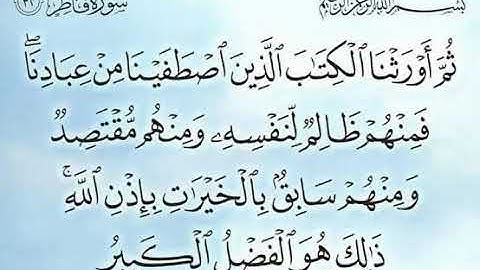 بسم الله الرحمن الرحيم
سورة فاطر
ثُمَّ أَوْرَثْنَا ٱلْكِتَٰبَ ٱلَّذِينَ ٱصْطَفَيْنَا مِنْ عِبَادِنَاۖ
فَمِنْهُمْ ظَالِمٌ لِّنَفْسِهِۦ وَمِنْهُم مُّقْتَصِدٌ
وَمِنْهُمْ سَابِقٌۢ بِٱلْخَيْرَٰتِ بِإِذْنِ ٱللَّهِۚ
ذَٰلِكَ هُوَ ٱلْفَضْلُ ٱلْكَبِيرُ